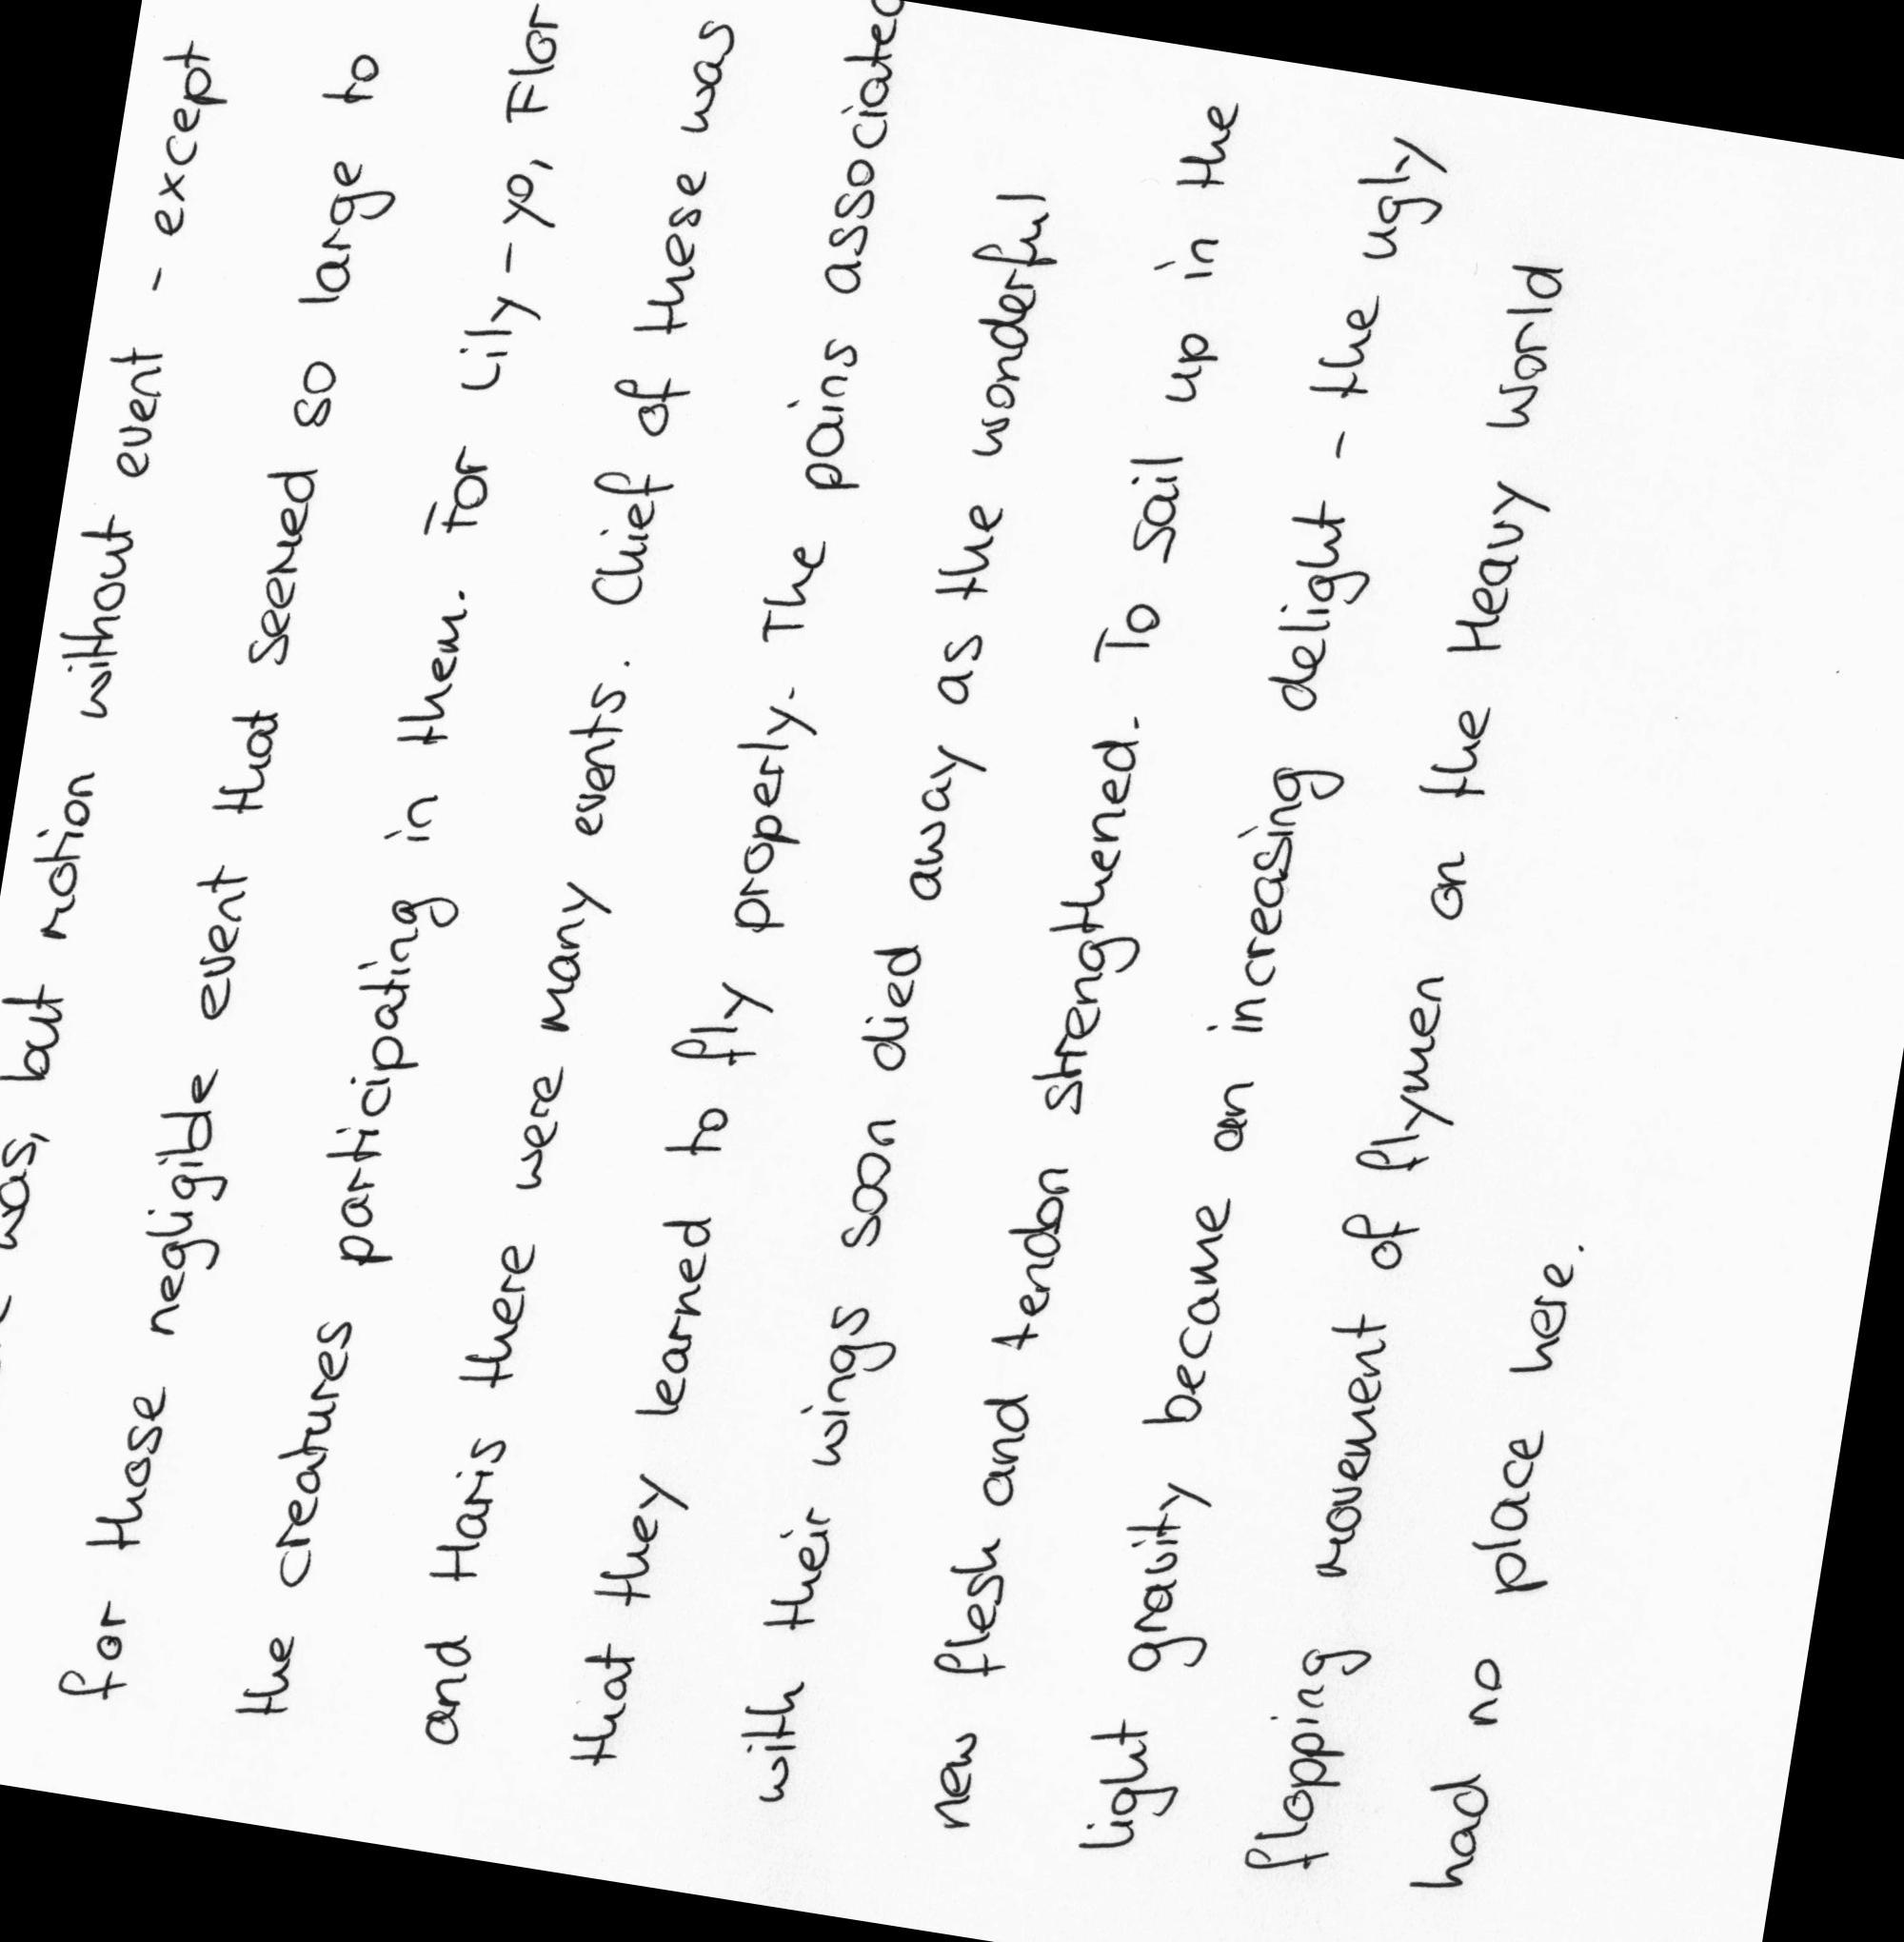 was, but motion without event - except
for those negligible event that seemed so large to
the creatures participating in them. For Lily-yo, Flor
and Haris there were many events. Chief of these was
that they learned to fly properly. The pains associated
with their wings soon died away as the wonderful
new flesh and tendon strengthened. To sail up in the
light gravity became an increasing delight - the ugly
flopping movement of flymen on the Heavy World
had no place here.